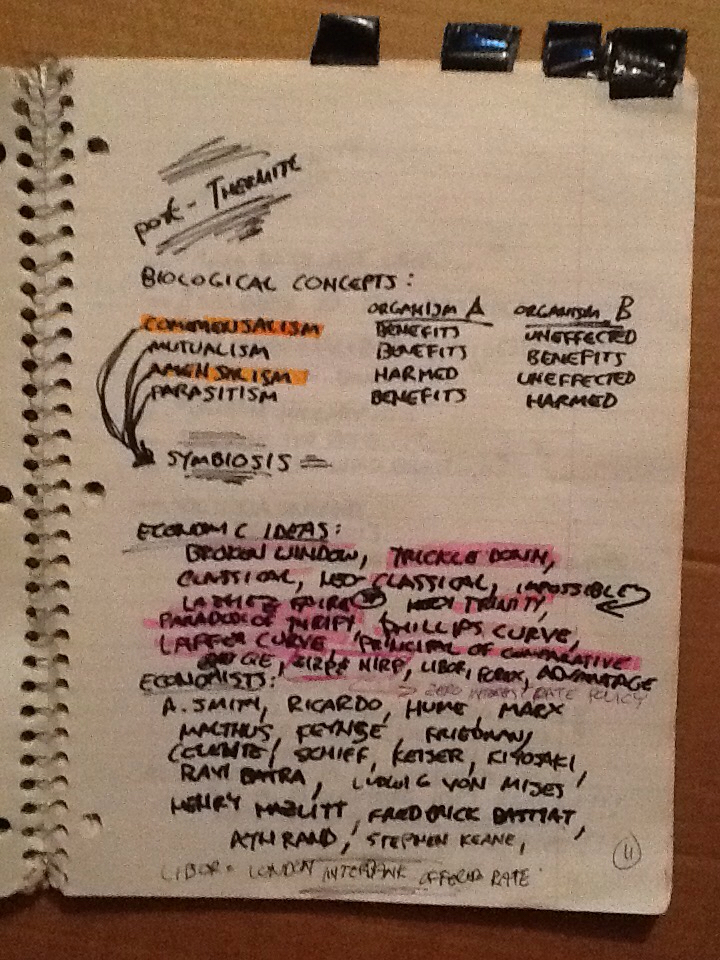 post - THERMITE
BIOLOGICAL CONCEPTS:
ORGANISM A ORGANISM B
COMMENSALISM BENEFITS UNEFFECTED
MUTUALISM BENEFITS BENEFITS
AMENSALISM HARMED UNEFFECTED
PARASITISM BENEFITS HARMED
SYMBIOSIS
ECONOMIC IDEAS:
BROKEN WINDOW, TRICKLE DOWN,
CLASSICAL, NEO-CLASSICAL, IMPOSSIBLE
FAIRE TRINITY,
PARADOX OF THRIFT, PHILLIPS CURVE,
LAFFER CURVE, PRINCIPAL OF COMPARATIVE
QE, ZIRP & NIRP, LIBOR, FOREX, ADVANTAGE
ECONOMISTS: > ZERO INTEREST RATE POLICY
A. SMITH, RICARDO, HUME, MARX
MALTHUS, FRIEDMAN,
CELENTE, SCHIFF, KEISER, KIYOSAKI,
RAVI BATRA, LUDWIG VON MISES
HENRY HAZLITT, FREDERICK BASTIAT,
AYN RAND, STEPHEN KEANE,
LIBOR = LONDON INTERBANK OFFERED RATE
11